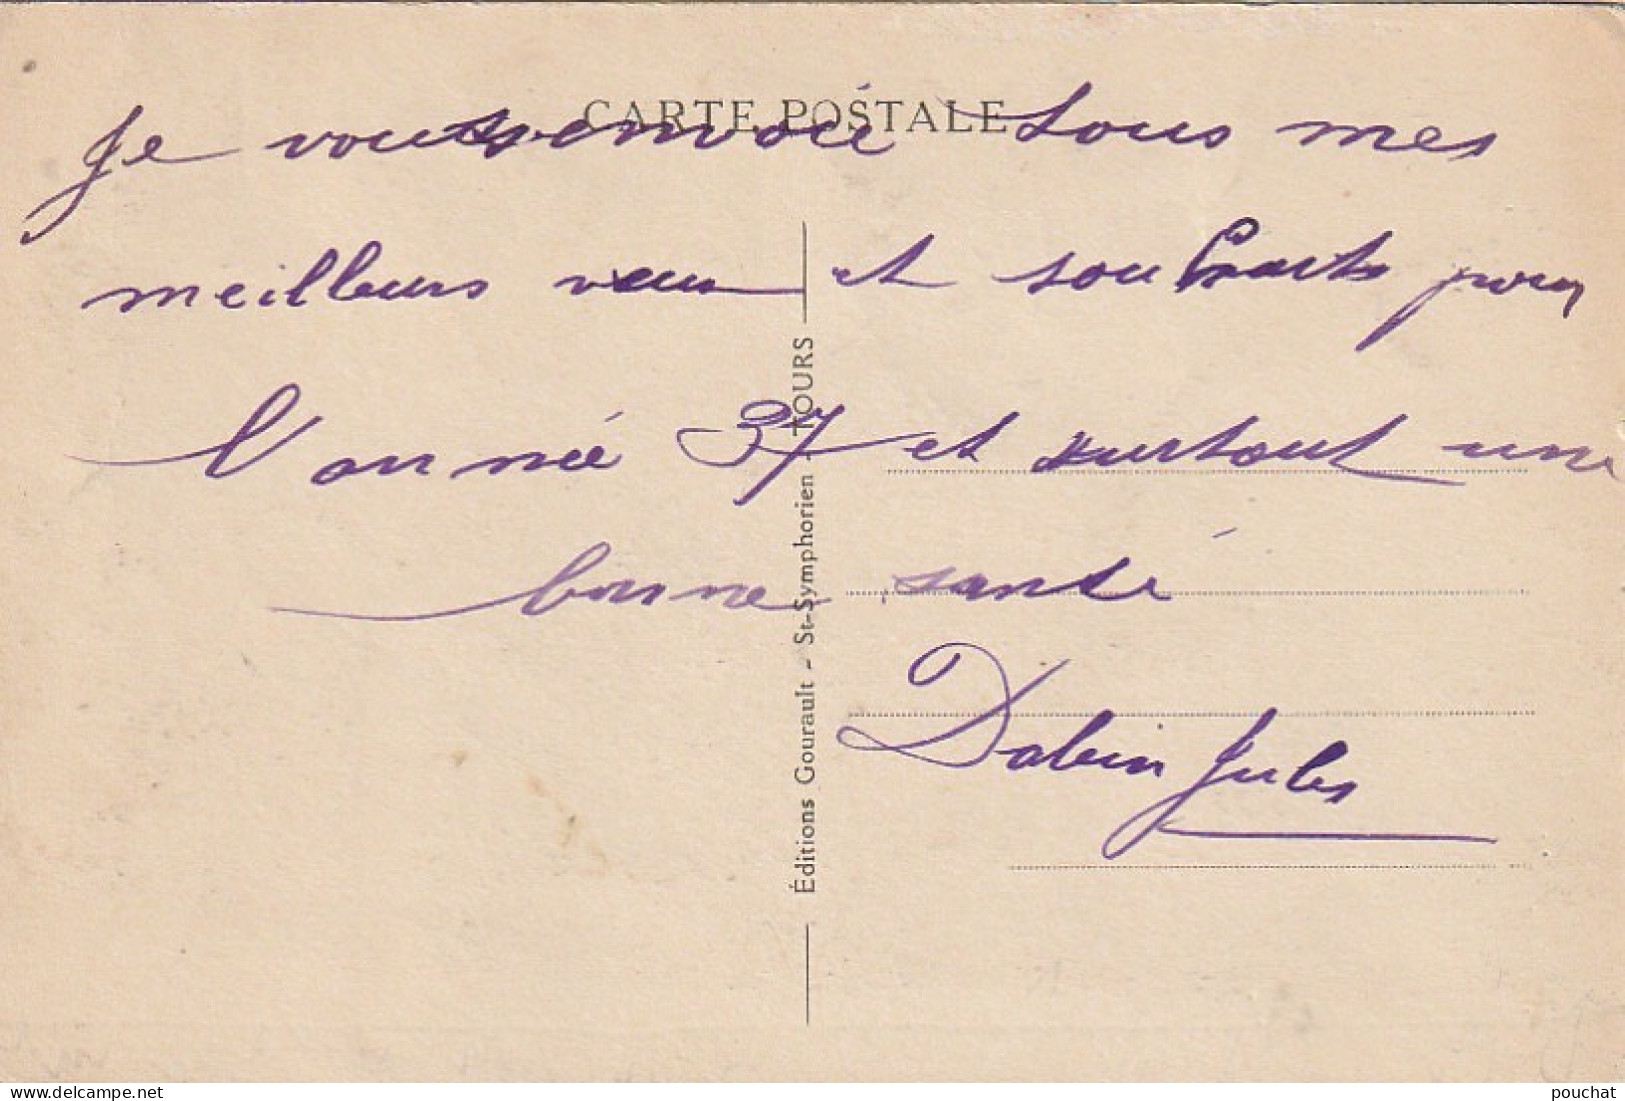 CARTE POSTALE
Je vous envoie tous mes
meilleurs vœux et souhaits pour
l'année 37 et surtout une
bonne santé
Dabin Jules
Éditions Gourault - St-Symphorien - TOURS
www.delcampe.net
pouchat